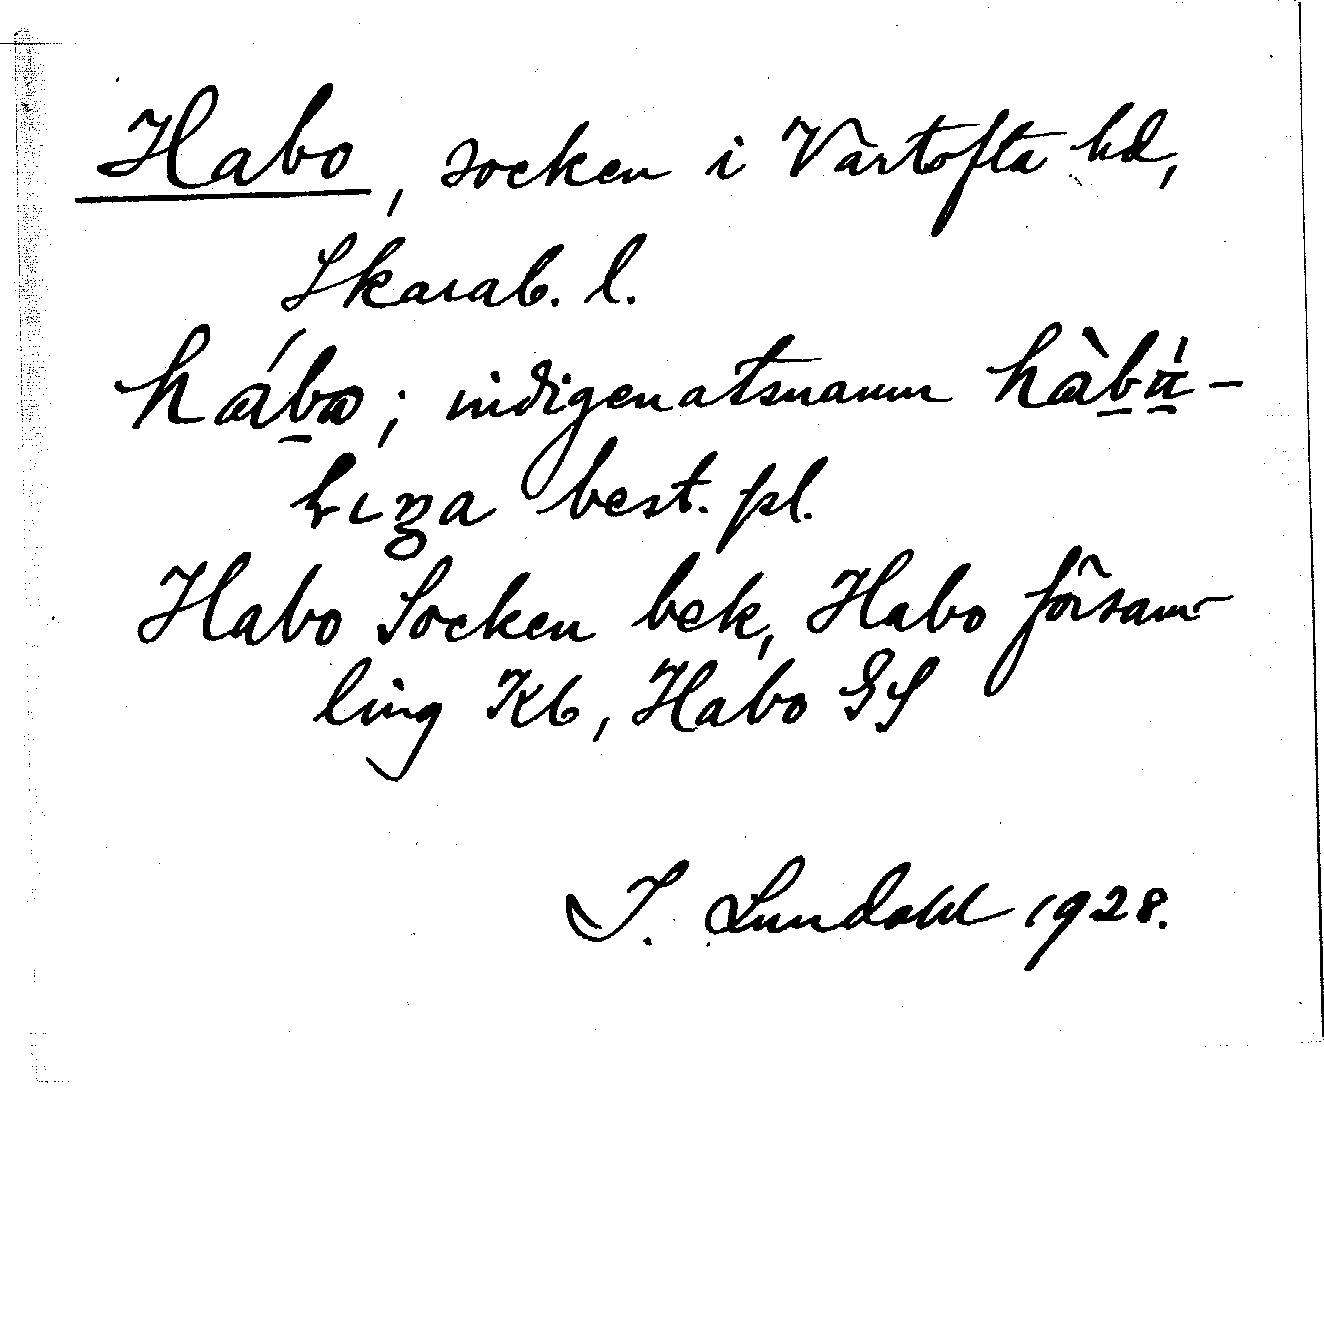 Habo, socken i Vartofta hd,
Skarab. l.
hábo; indigenatsnamn
best. pl.
Habo Socken bek, Habo försam-
ling Kb, Habo GS
I. Lundahl 1928.